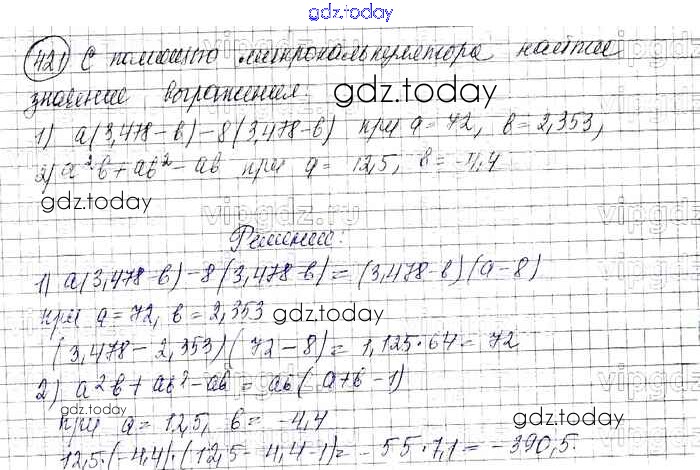 gdz.today
421 С помощью микрокалькулятора найти
значение выражения gdz.today
1) a(3,478-b)-8(3,478-b) при a=72, b=2,353,
2) a²b+ab²-ab при a=12,5, b=-4,4
gdz.today
vipgdz.ru
Решение:
1) a(3,478-b)-8(3,478-b)=(3,478-b)(a-8)
при a=72, b=2,353 gdz.today
(3,478-2,353)(72-8)=1,125·64=72
2) a²b+ab²-ab=ab(a+b-1)
gdz.today
при a=12,5, b=-4,4 gdz.today
12,5·(-4,4)·(12,5-4,4-1)=-55·7,1=-390,5.